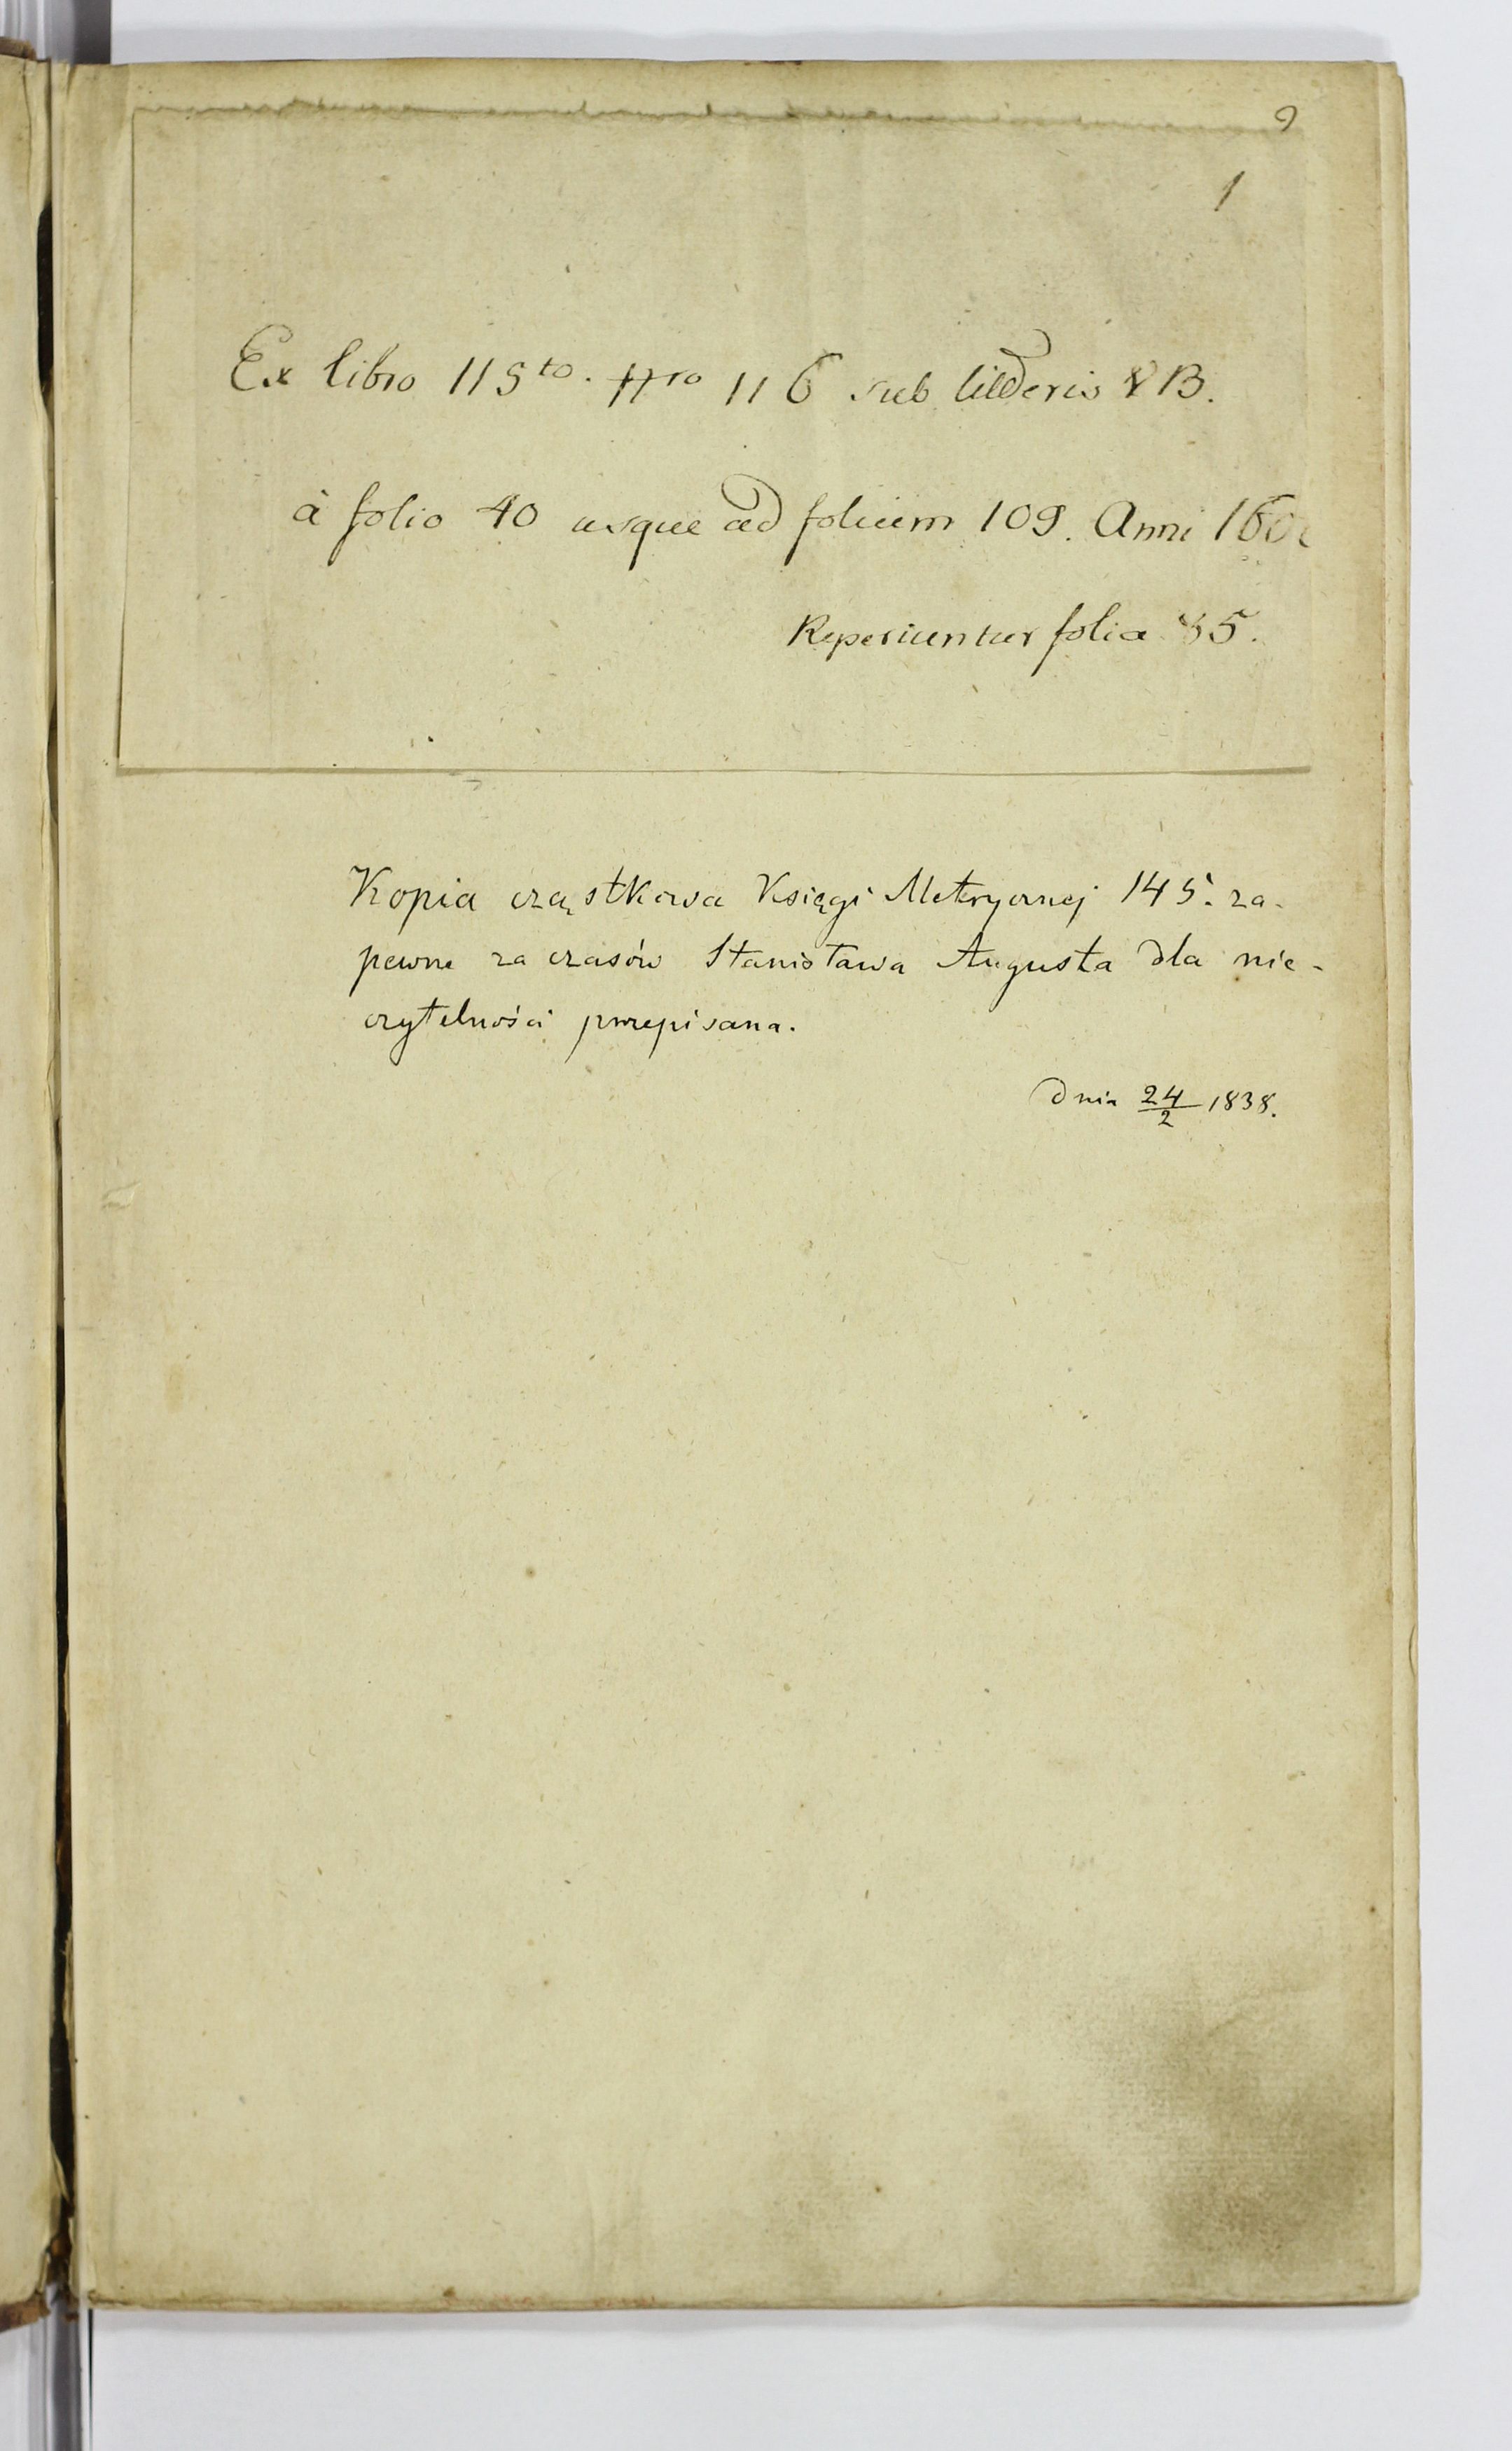 1
Ex libro 115to. Nro 116 sub litteris B.
à folio 40 usque ad folium 109. Anni
Reperiuntur folia 35.
Kopia cząstkowa Księgi Metrycznej 145. za-
pewne za czasów Stanisława Augusta dla nie-
czytelności przepisana.
Dnia 24/2 1838.